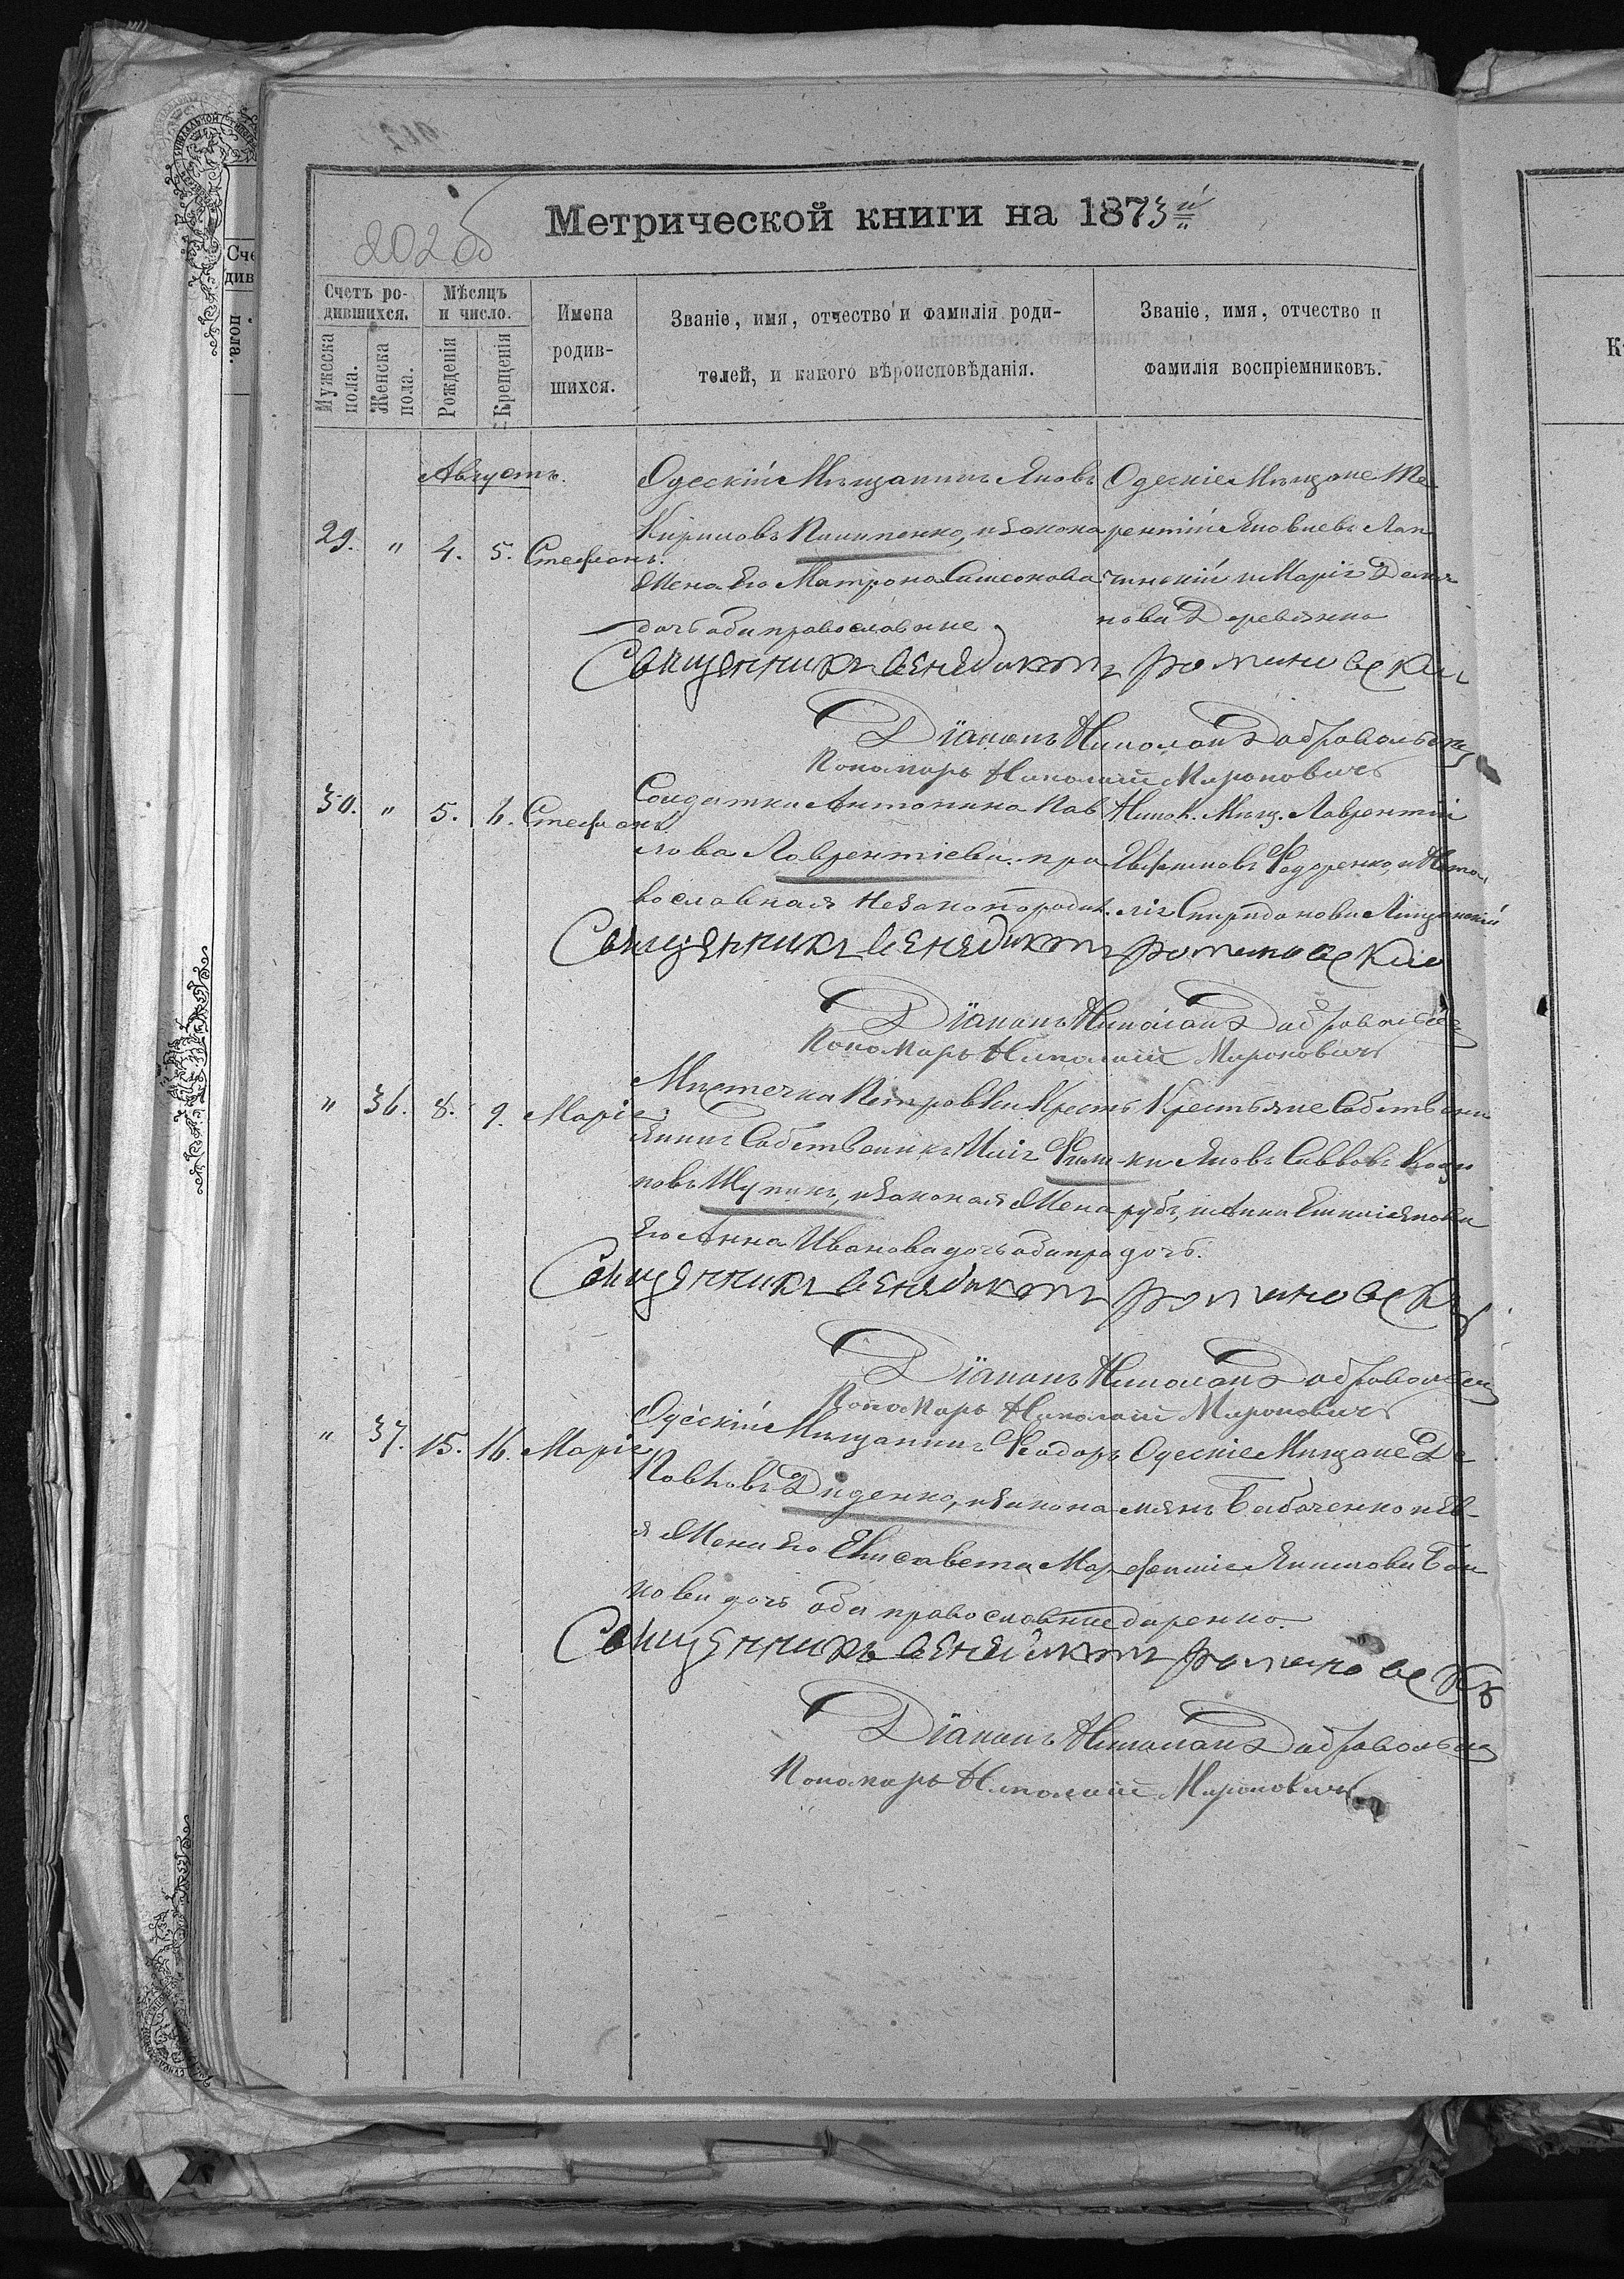 Метрической книги на 1873й
202 об
Счетъ ро-
дившихся.
Мѣсяцъ
и число.
Мужеска
пола.
Женска
пола.
Рожденія
Крещенія
Имена
родив-
шихся.
Званіе, имя, отчество и фамилія роди-
телей, и какого вѣроисповѣданія.
Званіе, имя, отчество и
фамилія воспріемниковъ.
Августъ.
29. " 4. 5. Стефанъ.
Одескій Мѣщанинъ Яковъ
Кириловъ Пилипенко, и закона
жена Его Матрона Симеонова
дочь оба православные
Одескіе Мѣщане Те-
рентій Яковлевъ Лап
чинскій и Марія Деми
нова Деревянко
Священникъ Венедиктъ Романовскій
Діаконъ Николай Добровольскій
Пономарь Николай Мироновичъ
30. " 5. 6. Стефанъ
Солдатка Антонина Пав
лова Лаврентіева. пра
вославная незаконорожд.
Никол. Мѣщ. Лаврентій
Евфимовъ Федоренко, и Ната
лія Спиридонова
Священникъ Венедиктъ Романовскій
Діаконъ Николай Добровольскій
Пономарь Николай Мироновичъ
" 36. 8. 9. Марія
Мѣстечка Петровки Кресть
янинъ Собственникъ Илія Фили
повъ Щупикъ, и законая Жена
Его Анна Иванова дочь оба пра
Крестьяне Собствени
ки Яковъ Саввовъ
рубъ, и Анна Емиліянова
дочь.
Священникъ Венедиктъ Романовскій
Діаконъ Николай Добровольскій
Пономарь Николай Мироновичъ
" 37. 15. 16. Марія
Одескій Мѣщанинъ Ѳеодоръ
Павловъ Диденко, и закона
я Жена Его Елисавета Мар
кова дочь оба православные
Одескіе Мѣщане Де
мянъ Бабаченко и Ев-
фимія Якимова Бон
даренко.
Священникъ Венедиктъ Романовскій
Діаконъ Николай Добровольскій
Пономарь Николай Мироновичъ